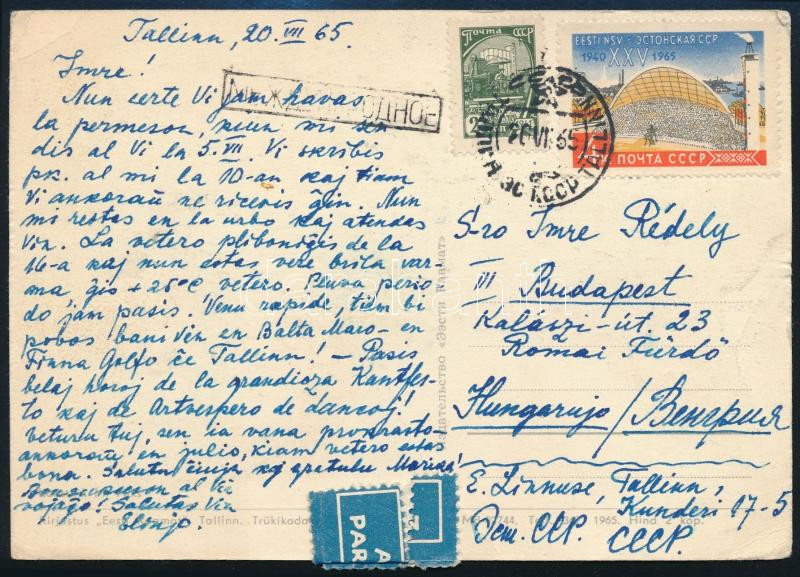 Tallinn, 20. VII 65.
Imre!
Nun certe Vi jam havas
la permeson, kiun mi
dis al Vi la 5. VII. Vi skribis
pk. al mi la 10-an kaj tiam
Vi ankoraŭ ne ricevis ĝin. Nun
mi restas en la urbo kaj atendas
Vin. La vetero pliboniĝis de la
16-a kaj nun estas vere brila var-
ma, ĝis +25°C vetero. Pluva perio
do jam pasis. Venu rapide, tiem Vi
povos bani Vin en Balta Maro – en
Finna Golfo ĉe Tallinn! – Pasis
belaj horoj de la grandioza Kantfes-
to kaj de Artvespero de dancoj!
Veturu tuj, sen ia vana prokrasto
ankoraŭ en julio, kiam vetero estas
bona. Salutu ĉiujn kaj gratulu
al Vi
vojaĝo! Salutas Vin
МЕЖДУНАРОДНОЕ
ПОЧТА СССР
EESTI NSV · ЭСТОНСКАЯ ССР
1940 XXV 1965
ПОЧТА СССР
TALLINN
S-ro Imre Rédely
III Budapest
Kalászi-út. 23
Római Fürdő
Hungarujo / Венгрия
E. Linnuse, Tallinn,
Kunderi 17-5
Эст. ССР. СССР.
Издательство «Ээсти Раамат»
Kirjastus „Eesti Raamat" Tallinn. Trükikoda
1965. Hind 2 kop.
PAR